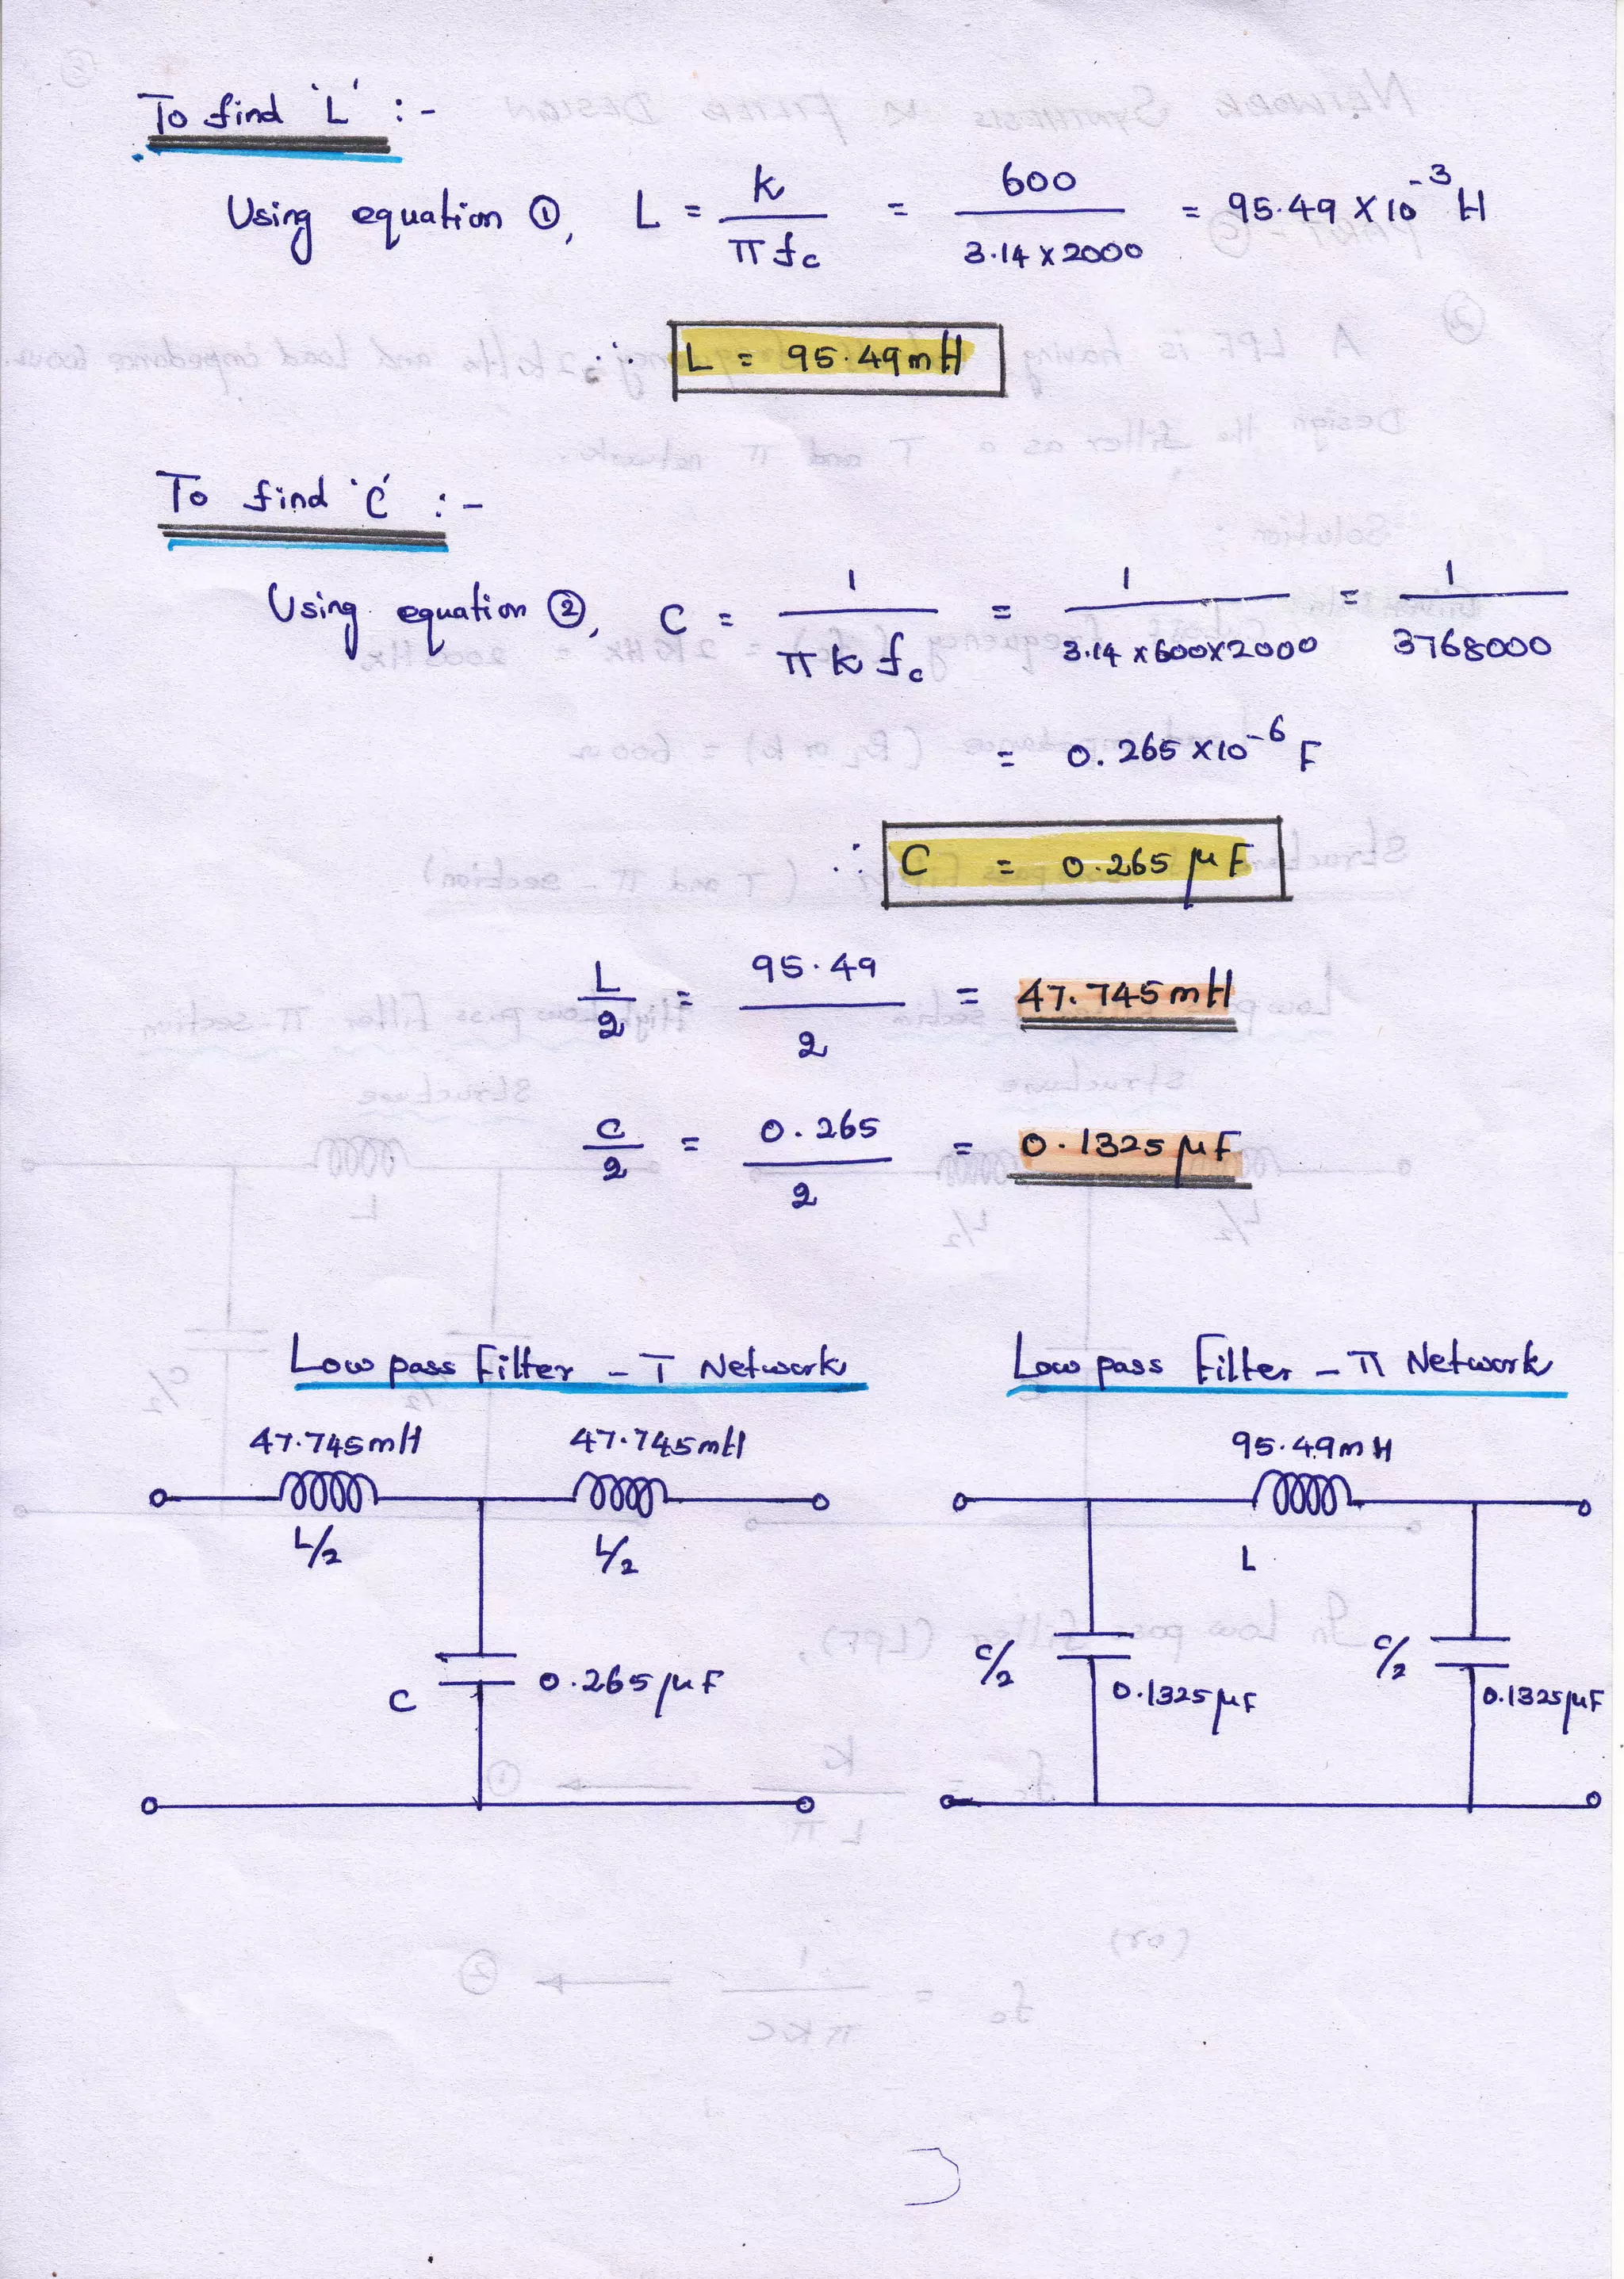 To find 'L' :-
Using equation ①, L = k / π fc = 600 / 3.14 x 2000 = 95.49 X 10^-3 H
∴ L = 95.49 mH
To find 'C' :-
Using equation ②, C = 1 / π k fc = 1 / 3.14 x 600 x 2000 = 1 / 3768000
= 0.265 x 10^-6 F
∴ C = 0.265 μF
L/2 = 95.49 / 2 = 47.745 mH
C/2 = 0.265 / 2 = 0.1325 μF
Low pass Filter - T Network
47.745 mH 47.745 mH
L/2 L/2
C 0.265 μF
Low pass Filter - π Network
95.49 mH
L
C/2 0.1325 μF C/2 0.1325 μF